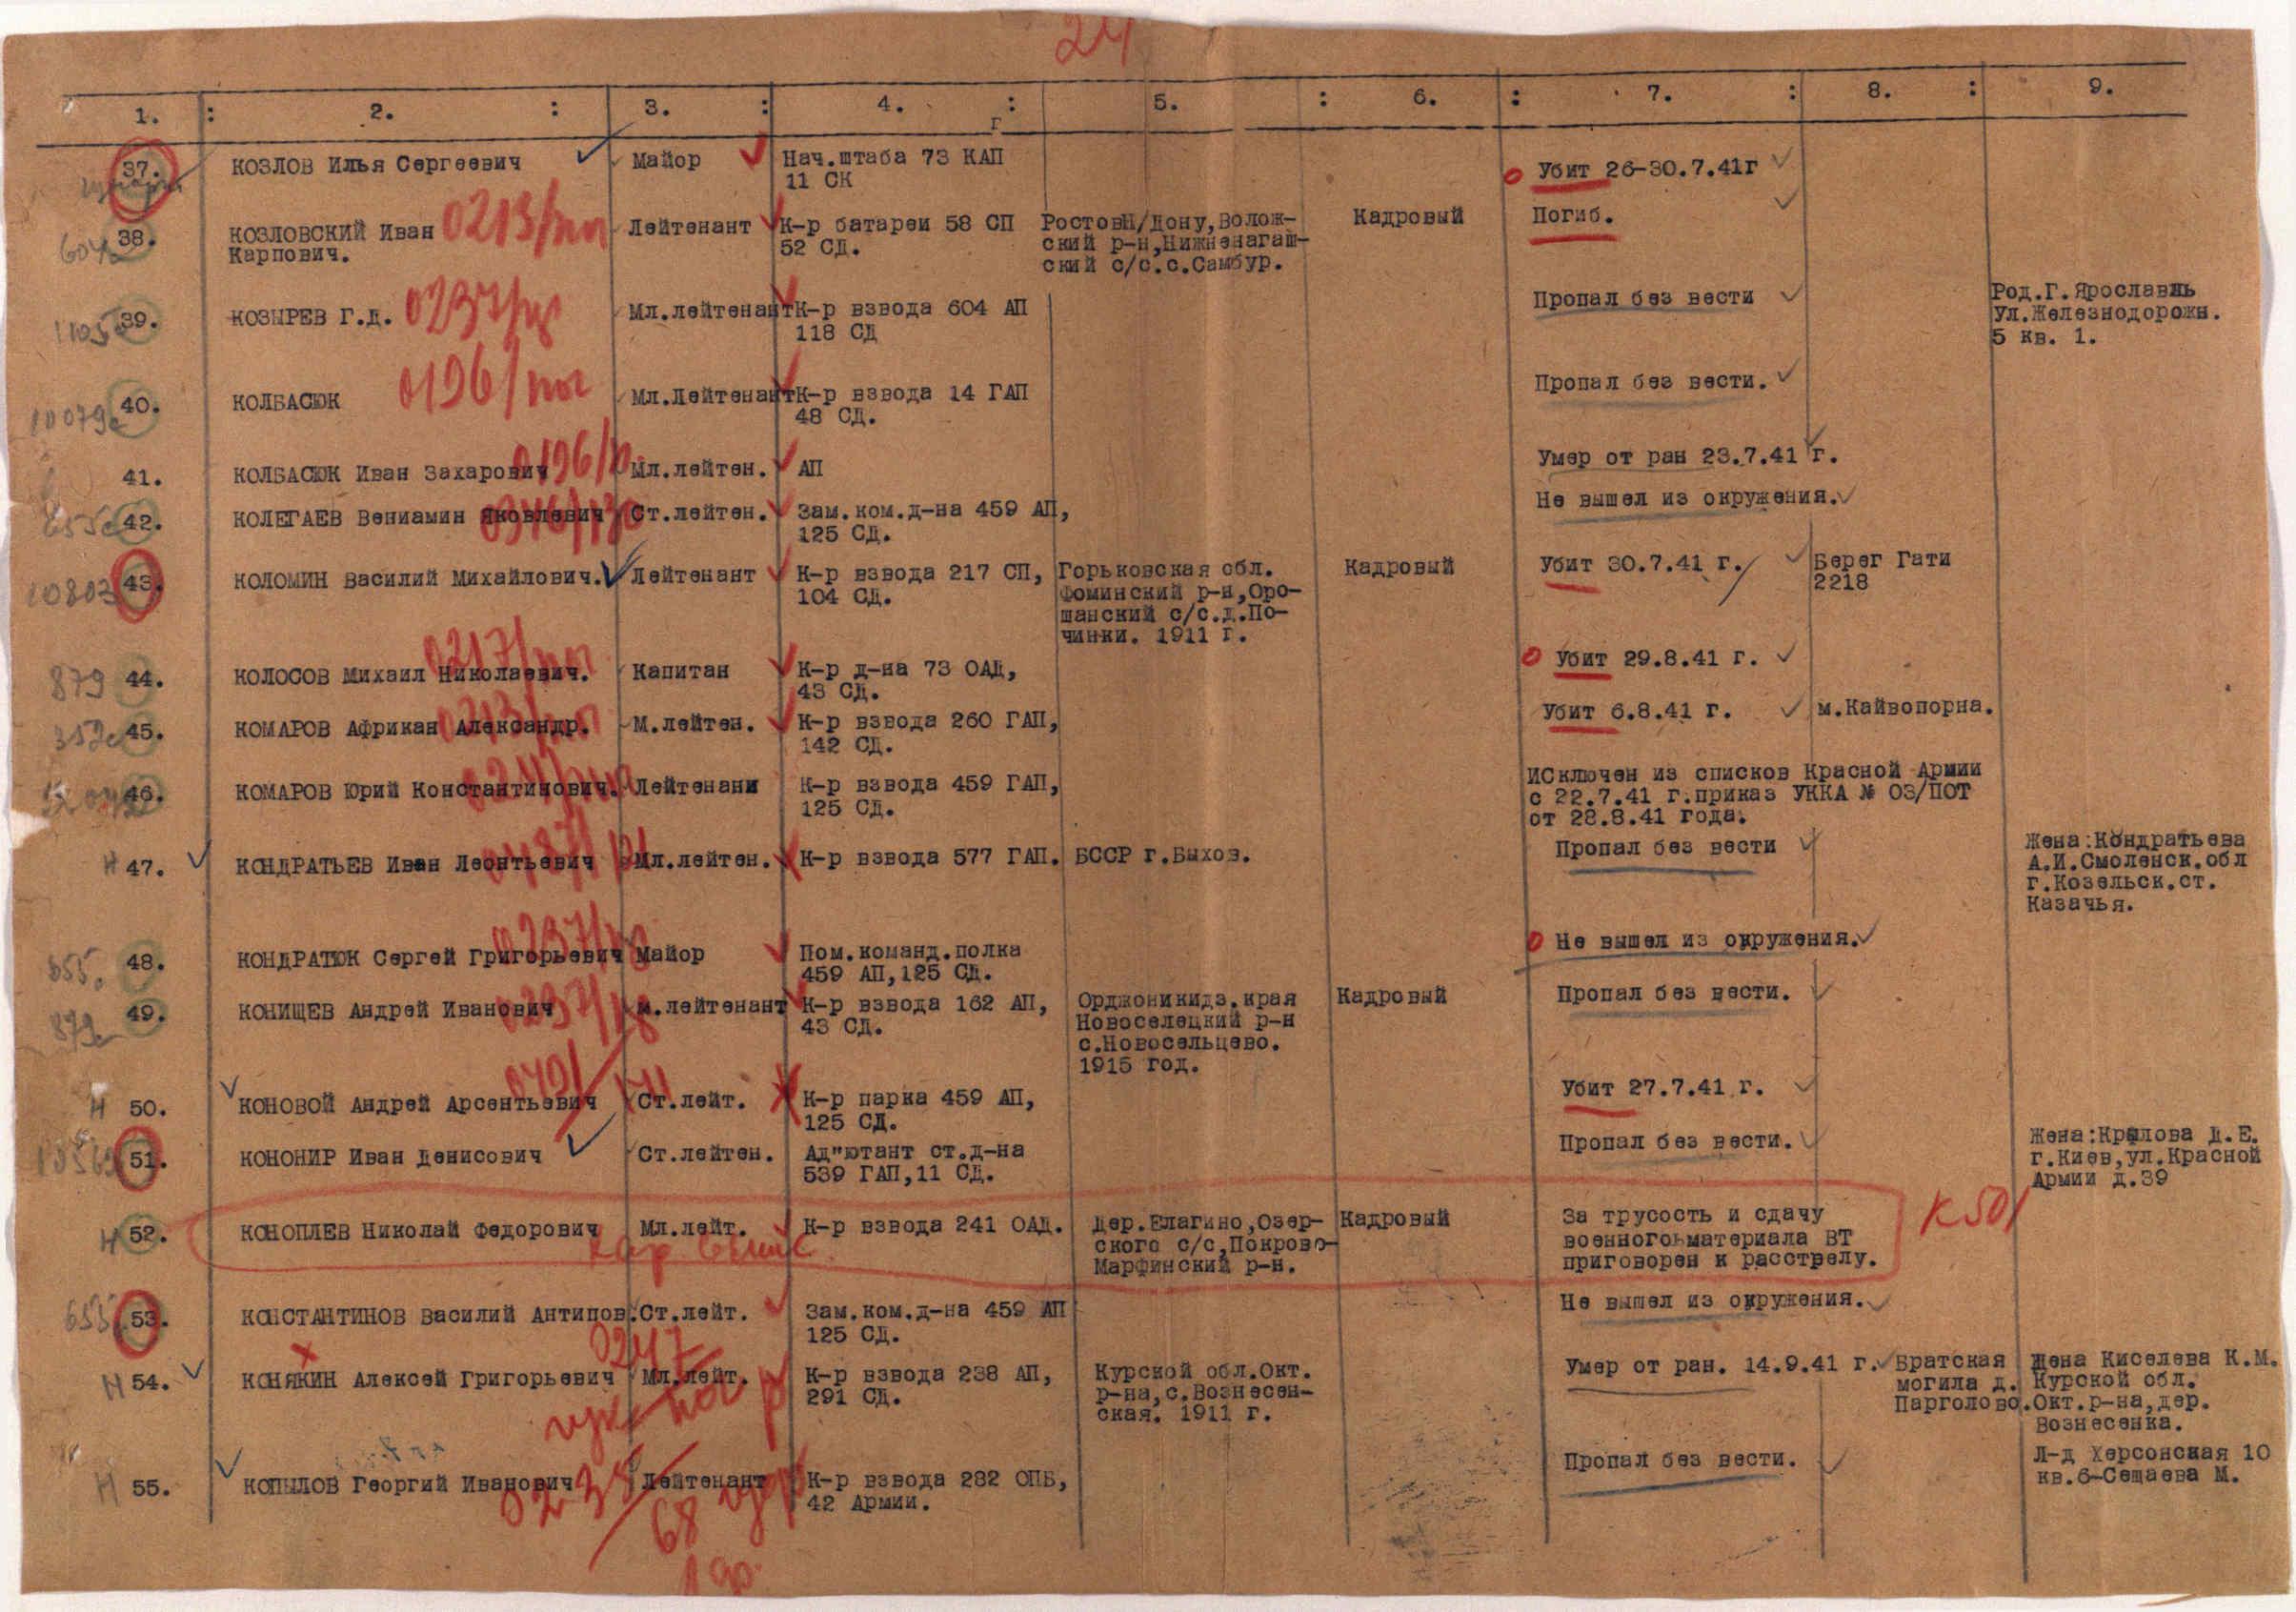 24
1. : 2. : 3. : 4. : 5. : 6. : 7. : 8. : 9.
г
37. КОЗЛОВ Илья Сергеевич Майор Нач.штаба 73 КАП Убит 26-30.7.41г
11 СК
38. КОЗЛОВСКИЙ Иван 0213/ Лейтенант К-р батареи 58 СП РостовН/Дону,Волож- Кадровый Погиб.
Карпович. 52 СД. ский р-н,Нижненагаш-
ский с/с.с.Самбур.
39. КОЗЫРЕВ Г.Д. 0237/ Мл.лейтенант К-р взвода 604 АП Пропал без вести Род.Г.Ярославль
118 СД Ул.Железнодорожн.
5 кв. 1.
40. КОЛБАСЮК 0196/ Мл.Лейтенант К-р взвода 14 ГАП Пропал без вести.
10079с 48 СД.
41. КОЛБАСЮК Иван Захарович 0196/ Мл.лейтен. АП Умер от ран 23.7.41 г.
42. КОЛЕГАЕВ Вениамин Яковлевич Ст.лейтен. Зам.ком.д-на 459 АП, Не вышел из окружения.
125 СД.
10803 43. КОЛОМИН Василий Михайлович. Лейтенант К-р взвода 217 СП, Горьковская обл. Кадровый Убит 30.7.41 г. Берег Гати
104 СД. Фоминский р-н,Оро- 2218
шанский с/с.д.По-
чинки. 1911 г.
879 44. КОЛОСОВ Михаил Николаевич. 0217/ Капитан К-р д-на 73 ОАД, Убит 29.8.41 г.
43 СД.
45. КОМАРОВ Африкан Александр. М.лейтен. К-р взвода 260 ГАП, Убит 6.8.41 г. м.Кайвопорна.
142 СД.
46. КОМАРОВ Юрий Константинович. Лейтенани К-р взвода 459 ГАП, ИСключен из списков Красной Армии
125 СД. с 22.7.41 г.приказ УККА № 03/ПОТ
от 28.8.41 года.
Н 47. КОНДРАТЬЕВ Иван Леонтьевич Мл.лейтен. К-р взвода 577 ГАП. БССР г.Быхов. Пропал без вести Жена:Кондратьева
А.И.Смоленск.обл
г.Козельск.ст.
Казачья.
655. 48. КОНДРАТЮК Сергей Григорьевич 0237/ Майор Пом.команд.полка Не вышел из окружения.
459 АП,125 СД.
879с 49. КОНИЩЕВ Андрей Иванович 0237/ М.лейтенант К-р взвода 162 АП, Орджоникидз.края Кадровый Пропал без вести.
43 СД. Новоселецкий р-н
с.Новосельцево.
1915 год.
Н 50. КОНОВОЙ Андрей Арсентьевич Ст.лейт. К-р парка 459 АП, Убит 27.7.41 г.
125 СД.
51. КОНОНИР Иван Денисович Ст.лейтен. Ад"ютант ст.д-на Пропал без вести. Жена:Крылова Д.Е.
539 ГАП,11 СД. г.Киев,ул.Красной
Армии д.39
Н 52. КОНОПЛЕВ Николай Федорович Мл.лейт. К-р взвода 241 ОАД. Дер.Елагино,Озер- Кадровый За трусость и сдачу К501
ского с/с,Покрово- военного материала ВТ
Марфинский р-н. приговорен к расстрелу.
655 53. КОНСТАНТИНОВ Василий Антипов. Ст.лейт. Зам.ком.д-на 459 АП Не вышел из окружения.
125 СД.
Н 54. КОНЯКИН Алексей Григорьевич 0247 Мл.лейт. К-р взвода 238 АП, Курской обл.Окт. Умер от ран. 14.9.41 г. Братская Жена Киселева К.М.
291 СД. р-на,с.Вознесен- могила д. Курской обл.
ская. 1911 г. Парголово. Окт.р-на,дер.
Вознесенка.
Н 55. КОПЫЛОВ Георгий Иванович Лейтенант К-р взвода 282 ОПБ, Пропал без вести. Л-д Херсонская 10
42 Армии. кв.6-Сещаева М.
68